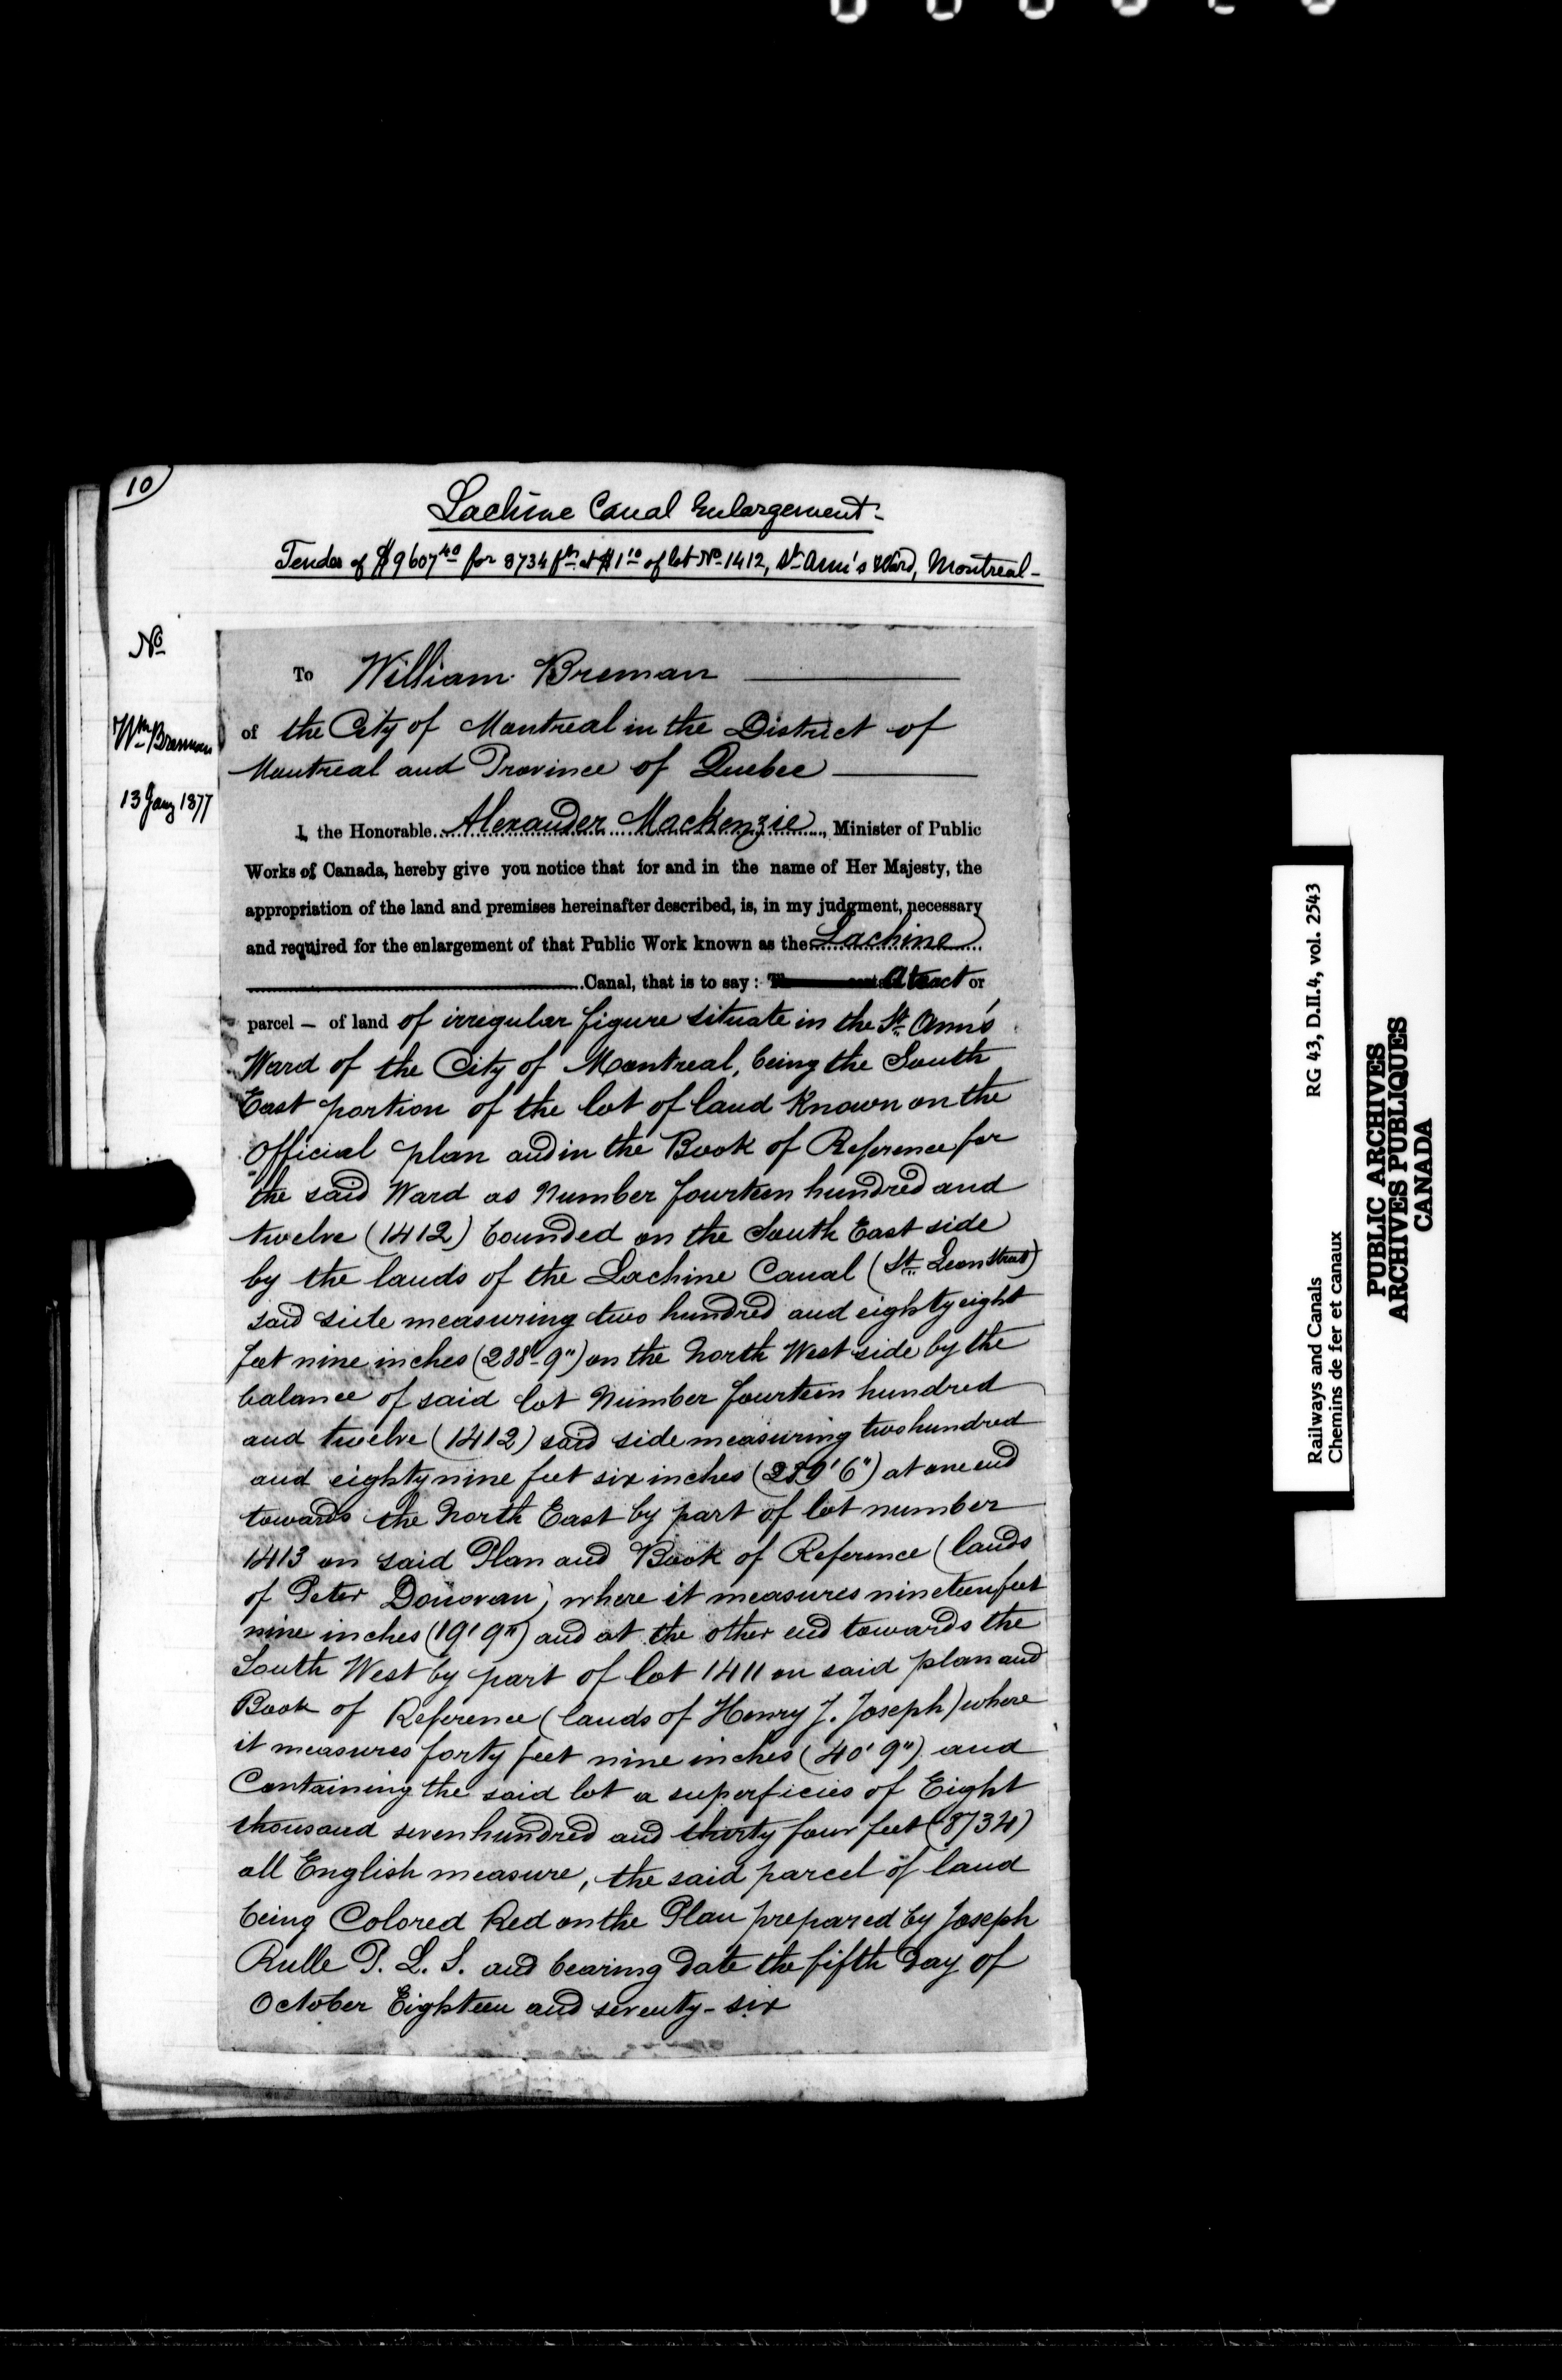 10
Lachine Canal Enlargement -
Tender of $9607 40 for 8734 ft. at $1 10 of lot No 1412, St Ann's Ward, Montreal -
No
Wm Brennan
13 Jany 1877
To William Brennan
of the City of Montreal in the District of
Montreal and Province of Quebec
I, the Honorable Alexander Mackenzie, Minister of Public
Works of Canada, hereby give you notice that for and in the name of Her Majesty, the
appropriation of the land and premises hereinafter described, is, in my judgment, necessary
and required for the enlargement of that Public Work known as the Lachine
Canal, that is to say: A tract or
parcel — of land of irregular figure situate in the St. Ann's
Ward of the City of Montreal, being the South
East portion of the lot of land Known on the
Official plan and in the Book of Reference for
the said Ward as Number fourteen hundred and
twelve (1412) bounded on the South East side
by the lands of the Lachine Canal (St. Leon Street)
said side measuring two hundred and eighty eight
feet nine inches (288'-9") on the North West side by the
balance of said lot Number fourteen hundred
and twelve (1412) said side measuring two hundred
and eighty nine feet six inches (289' 6") at one end
towards the North East by part of lot number
1413 on said Plan and Book of Reference (lands
of Peter Donovan) where it measures nineteen feet
nine inches (19' 9") and at the other end towards the
South West by part of lot 1411 on said plan and
Book of Reference (lands of Henry J. Joseph) where
it measures forty feet nine inches (40' 9") and
Containing the said lot a superficies of Eight
thousand seven hundred and thirty four feet (8734)
all English measure, the said parcel of land
being Colored Red on the Plan prepared by Joseph
Rielle P. L. S. and bearing date the fifth day of
October Eighteen and seventy-six
Railways and Canals RG 43, D.II.4, vol. 2543
Chemins de fer et canaux
PUBLIC ARCHIVES
ARCHIVES PUBLIQUES
CANADA